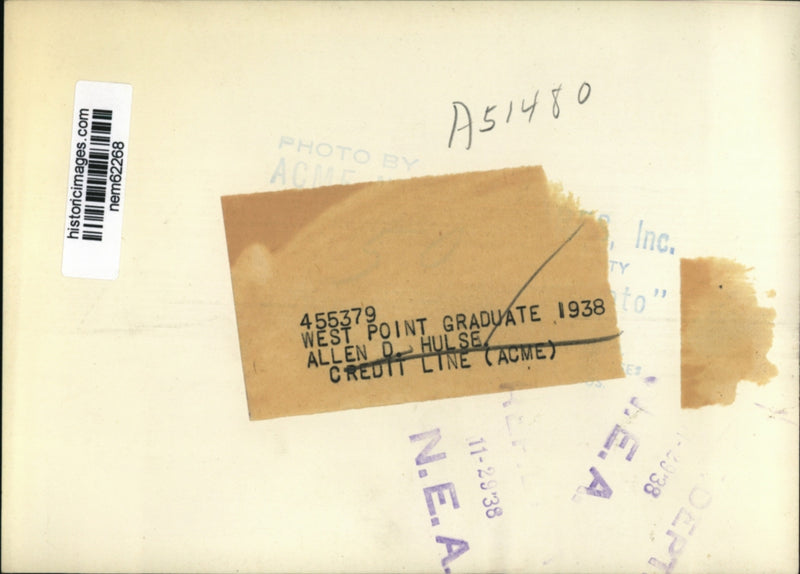 historicimages.com
nem62268
A51480
PHOTO BY
ACME
, Inc.
TY
to"
455379
WEST POINT GRADUATE 1938
ALLEN D. HULSE
CREDIT LINE (ACME)
N.E.A.
11-29'38
N.E.A
DEPT.